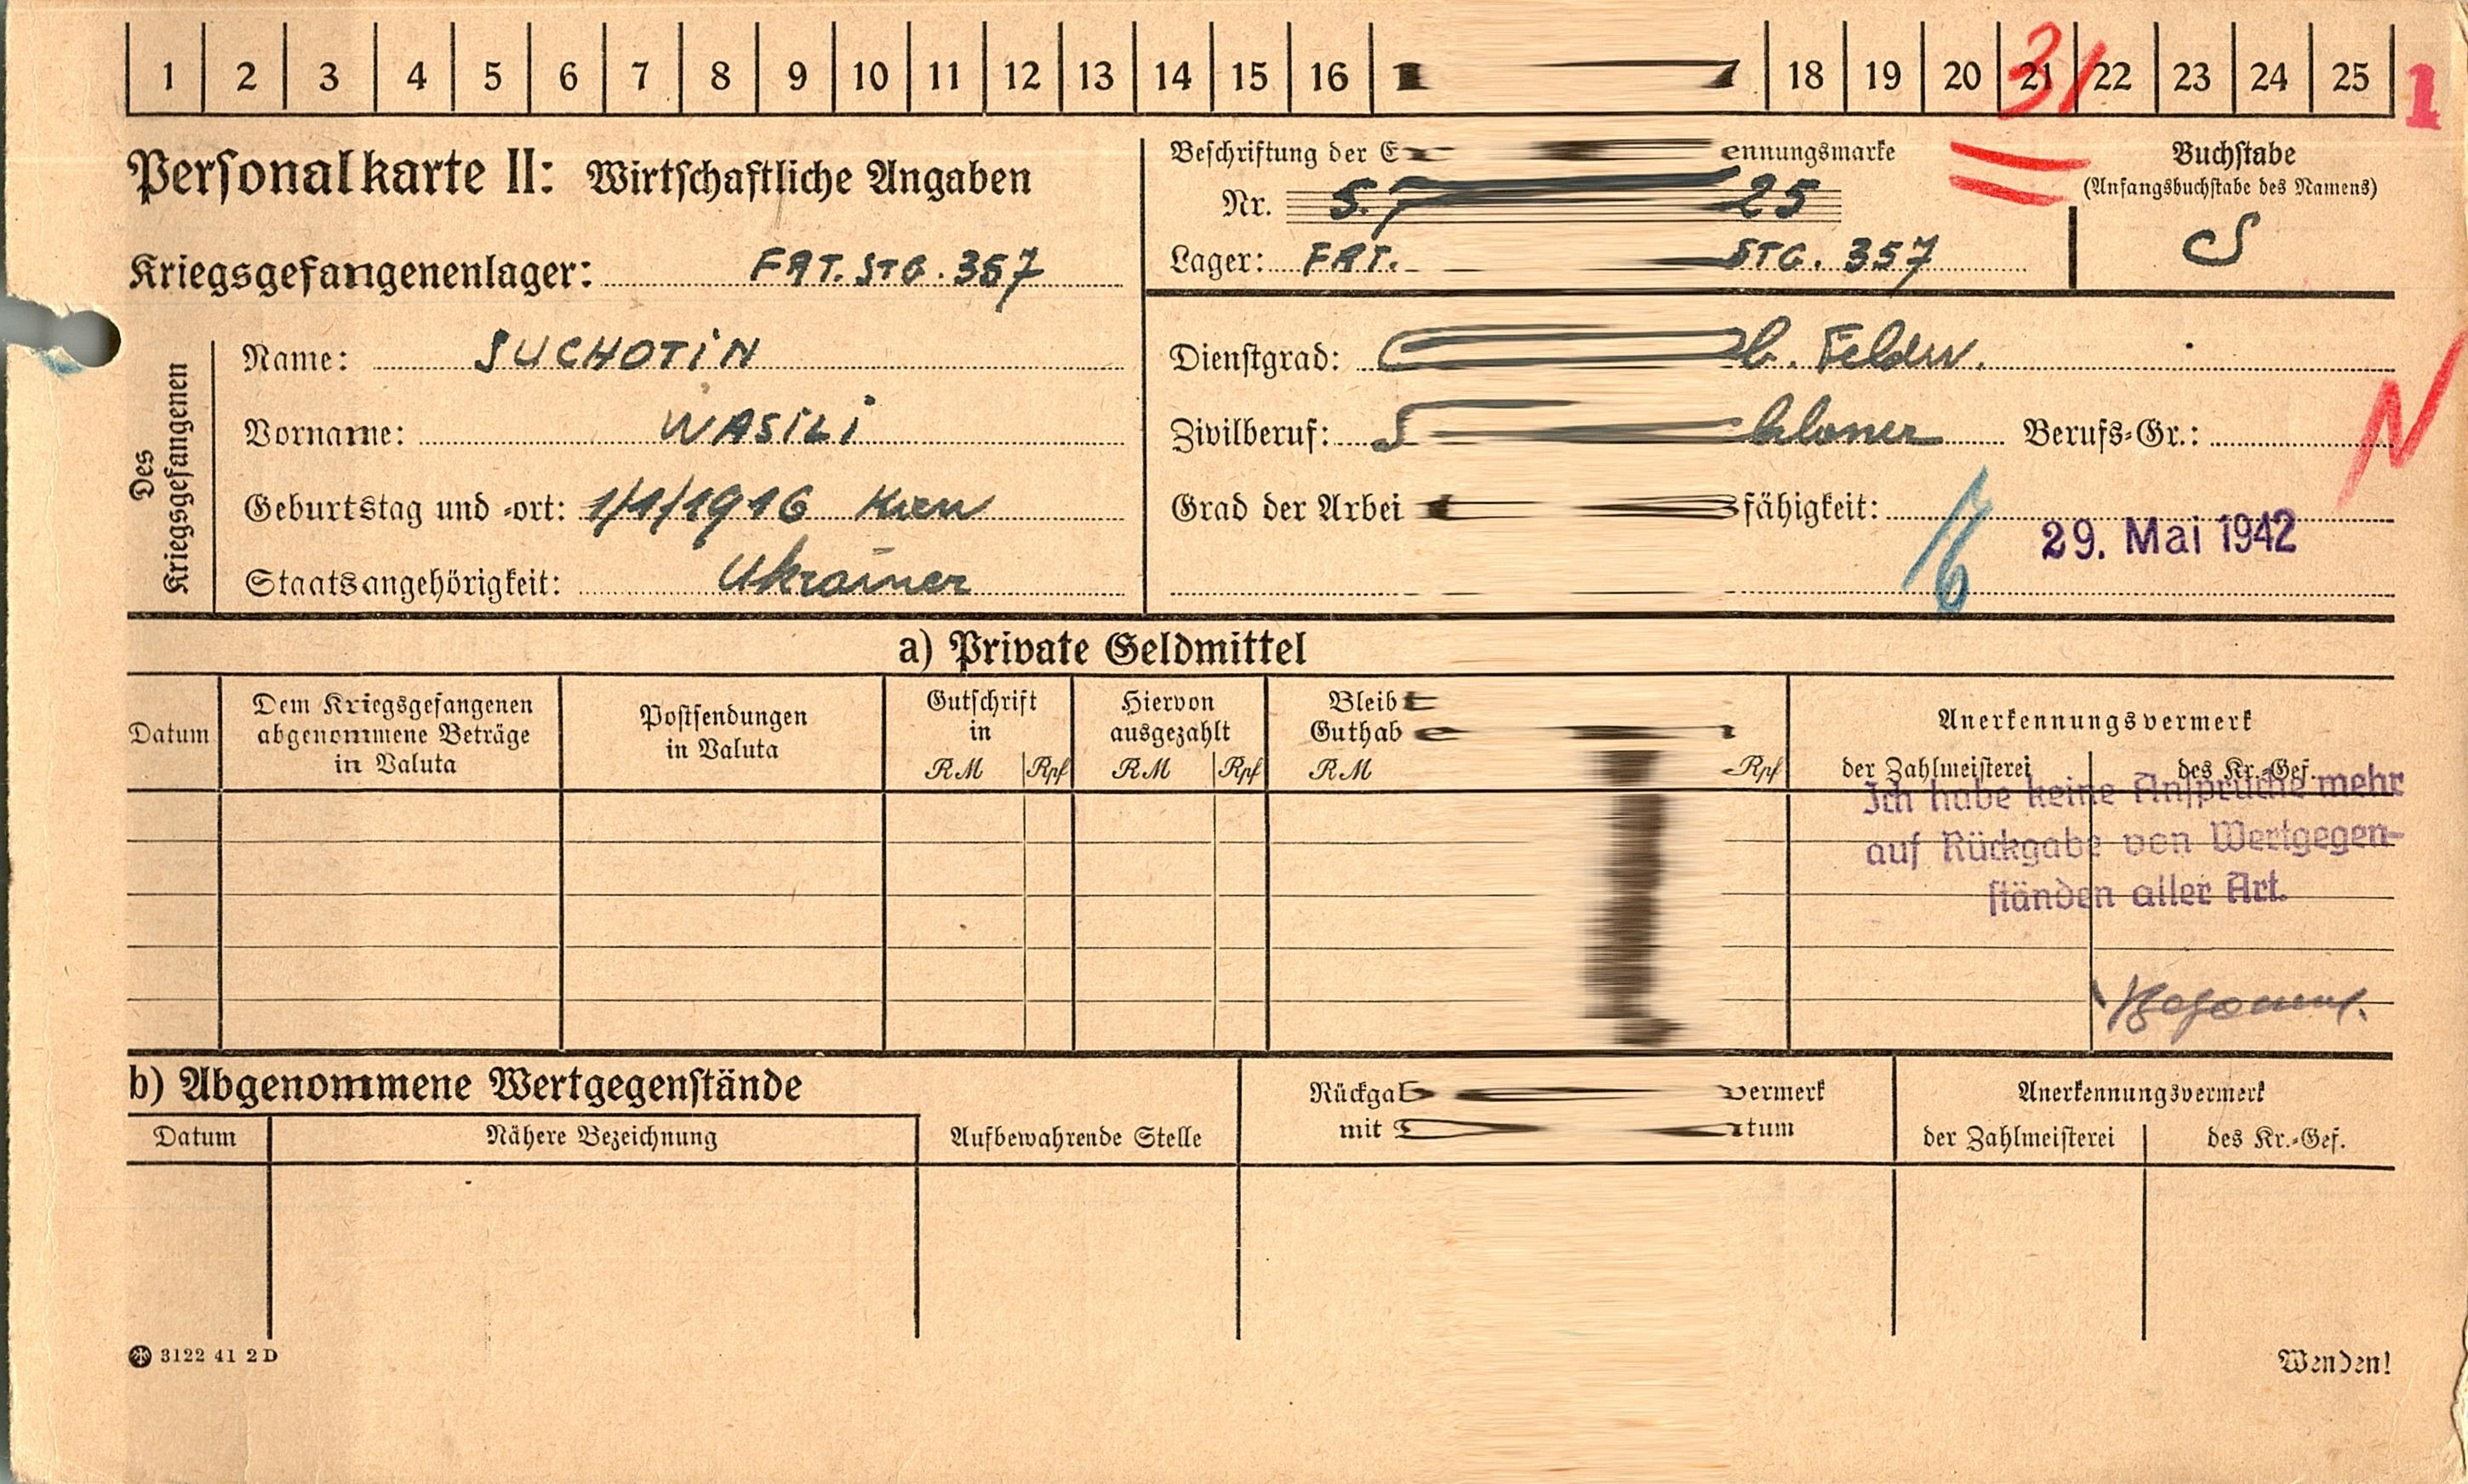 1 2 3 4 5 6 7 8 9 10 11 12 13 14 15 16 18 19 20 21 22 23 24 25
31
1
Personalkarte II: Wirtschaftliche Angaben
Kriegsgefangenenlager: FRT. STG. 357
Beschriftung der ennungsmarke
Nr. 25
Lager: FRT. STG. 357
Buchstabe
(Anfangsbuchstabe des Namens)
S
Des Kriegsgefangenen
Name: SUCHOTIN
Vorname: WASILI
Geburtstag und -ort: 1/1/1916 Kiew
Staatsangehörigkeit: Ukrainer
Dienstgrad: b. Feldw.
Zivilberuf: Berufs-Gr.:
N
Grad der Arbei fähigkeit:
29. Mai 1942
a) Private Geldmittel
Datum
Dem Kriegsgefangenen
abgenommene Beträge
in Valuta
Postsendungen
in Valuta
Gutschrift
in
RM Rpf
Hiervon
ausgezahlt
RM Rpf
Bleib
Guthab
RM Rpf
Anerkennungsvermerk
der Zahlmeisterei des Kr.-Gef.
Ich habe keine Ansprüche mehr
auf Rückgabe von Wertgegen-
ständen aller Art.
b) Abgenommene Wertgegenstände
Datum Nähere Bezeichnung Aufbewahrende Stelle
Rückgab vermerk
mit tum
Anerkennungsvermerk
der Zahlmeisterei des Kr.-Gef.
3122 41 2D
Wenden!